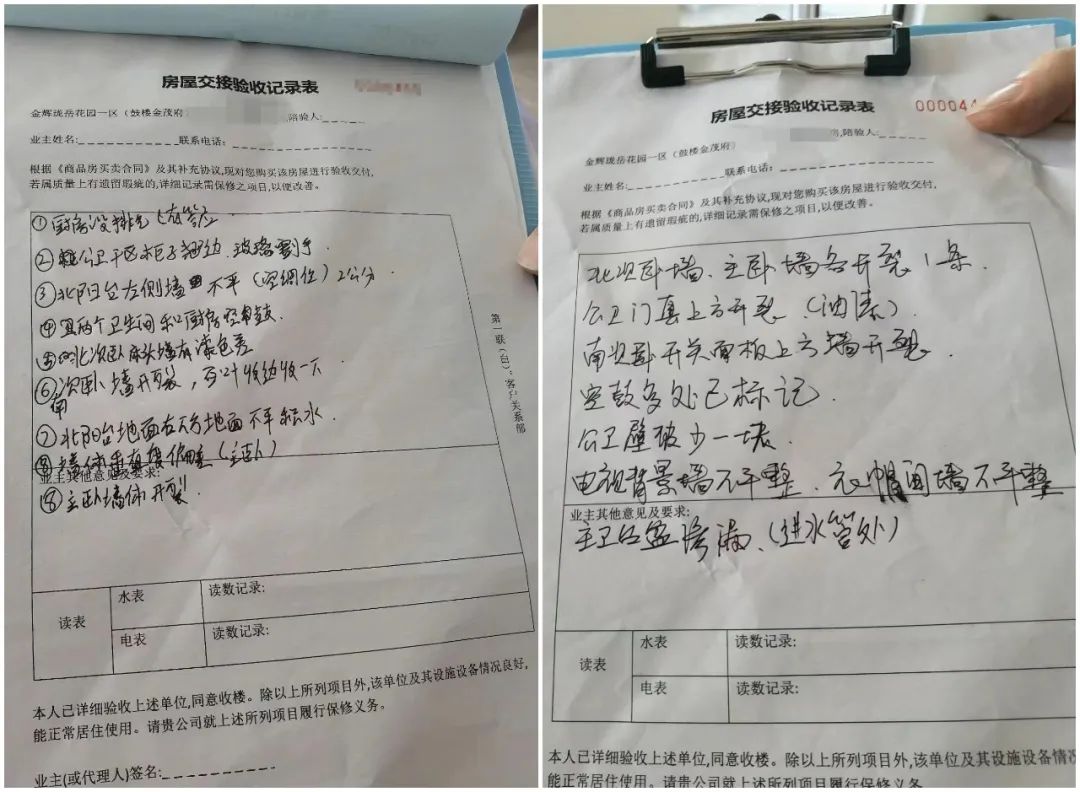 房屋交接验收记录表
金辉珑岳花园一区（鼓楼金茂府）
,陪验人:
业主姓名: 联系电话:
根据《商品房买卖合同》及其补充协议,现对您购买该房屋进行验收交付,
若属质量上有遗留瑕疵的,详细记录需保修之项目,以便改善。
① 厨房没排气
② 公卫干区柜子 边 玻璃割手
③ 北阳台左侧墙 不平（空调位）2公分
④ 两个卫生间和厨房空鼓
⑤ 北次卧床头墙有漆色差
⑥ 次卧墙开裂,
⑦ 北阳台地面 地面不平积水
业主其他意见及要求:
⑧ 主卧墙体开裂.
读表
水表 读数记录:
电表 读数记录:
本人已详细验收上述单位,同意收楼。除以上所列项目外,该单位及其设施设备情况良好,
能正常居住使用。请贵公司就上述所列项目履行保修义务。
业主(或代理人)签名:
第一联（白）：客户关系部
房屋交接验收记录表 000044
金辉珑岳花园一区（鼓楼金茂府）
房,陪验人:
业主姓名: 联系电话:
根据《商品房买卖合同》及其补充协议,现对您购买该房屋进行验收交付,
若属质量上有遗留瑕疵的,详细记录需保修之项目,以便改善。
北次卧墙、主卧墙各开裂1条.
公卫门套上方开裂（油漆）.
南次卧开关面板上方墙开裂.
空鼓多处已标记.
公卫壁玻少一块.
电视背景墙不平整、衣帽间墙不平整
业主其他意见及要求:
主卫台盆渗漏、（进水管处）
读表
水表 读数记录:
电表 读数记录:
本人已详细验收上述单位,同意收楼。除以上所列项目外,该单位及其设施设备情况
能正常居住使用。请贵公司就上述所列项目履行保修义务。